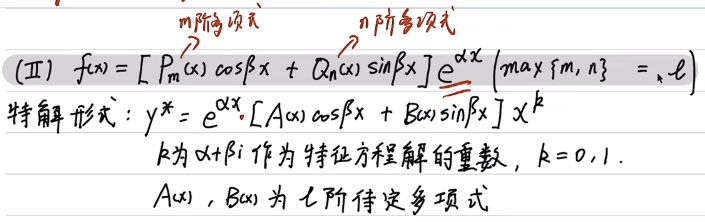 m阶多项式 n阶多项式
(II) f(x) = [ Pm(x) cosβx + Qn(x) sinβx ] e^αx (max{m, n} = l)
特解形式: y* = e^αx·[A(x) cosβx + B(x) sinβx] x^k
k为α+βi作为特征方程解的重数, k=0,1.
A(x), B(x) 为 l 阶待定多项式